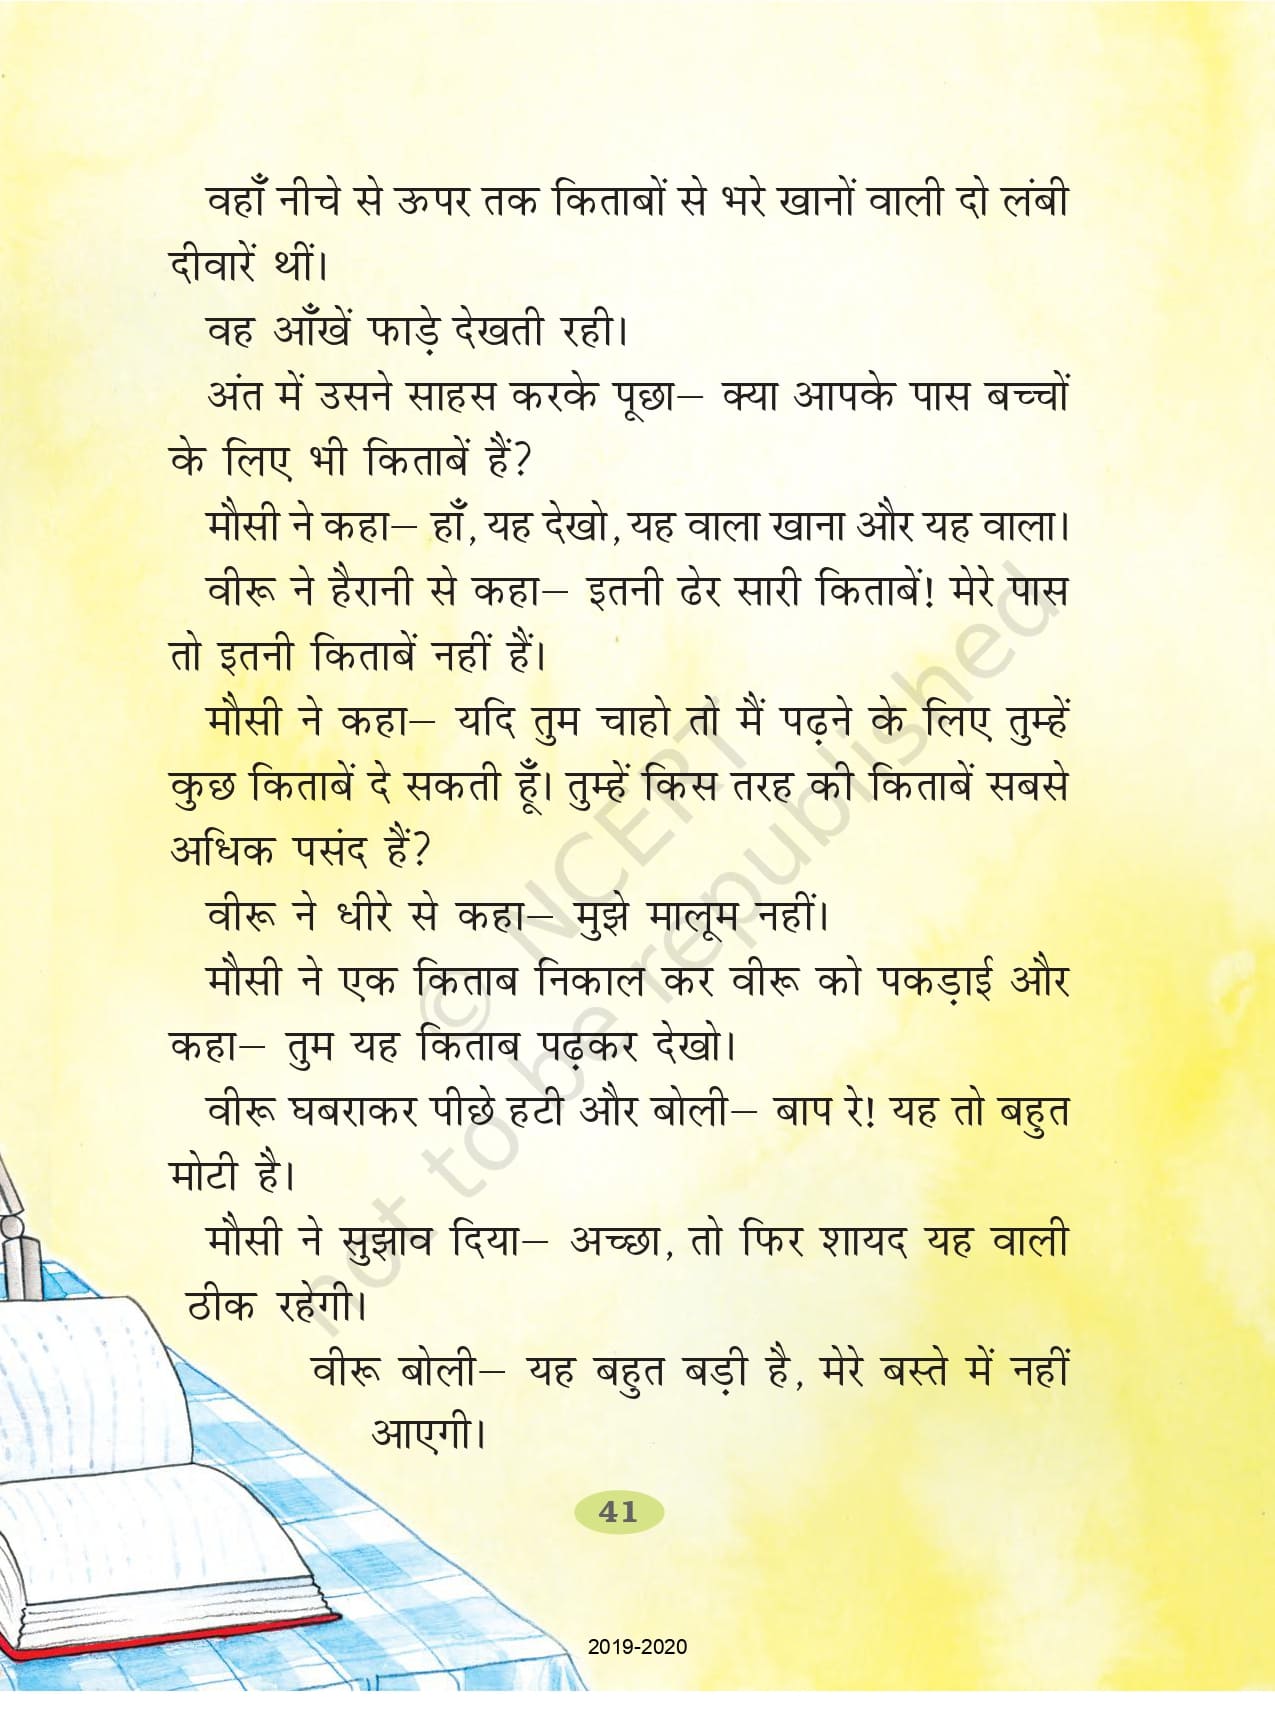 वहाँ नीचे से ऊपर तक किताबों से भरे खानों वाली दो लंबी
दीवारें थीं।
वह आँखें फाड़े देखती रही।
अंत में उसने साहस करके पूछा– क्या आपके पास बच्चों
के लिए भी किताबें हैं?
मौसी ने कहा– हाँ, यह देखो, यह वाला खाना और यह वाला।
वीरू ने हैरानी से कहा– इतनी ढेर सारी किताबें! मेरे पास
तो इतनी किताबें नहीं हैं।
मौसी ने कहा– यदि तुम चाहो तो मैं पढ़ने के लिए तुम्हें
कुछ किताबें दे सकती हूँ। तुम्हें किस तरह की किताबें सबसे
अधिक पसंद हैं?
वीरू ने धीरे से कहा– मुझे मालूम नहीं।
मौसी ने एक किताब निकाल कर वीरू को पकड़ाई और
कहा– तुम यह किताब पढ़कर देखो।
वीरू घबराकर पीछे हटी और बोली– बाप रे! यह तो बहुत
मोटी है।
मौसी ने सुझाव दिया– अच्छा, तो फिर शायद यह वाली
ठीक रहेगी।
वीरू बोली– यह बहुत बड़ी है, मेरे बस्ते में नहीं
आएगी।
© NCERT
not to be republished
41
2019-2020